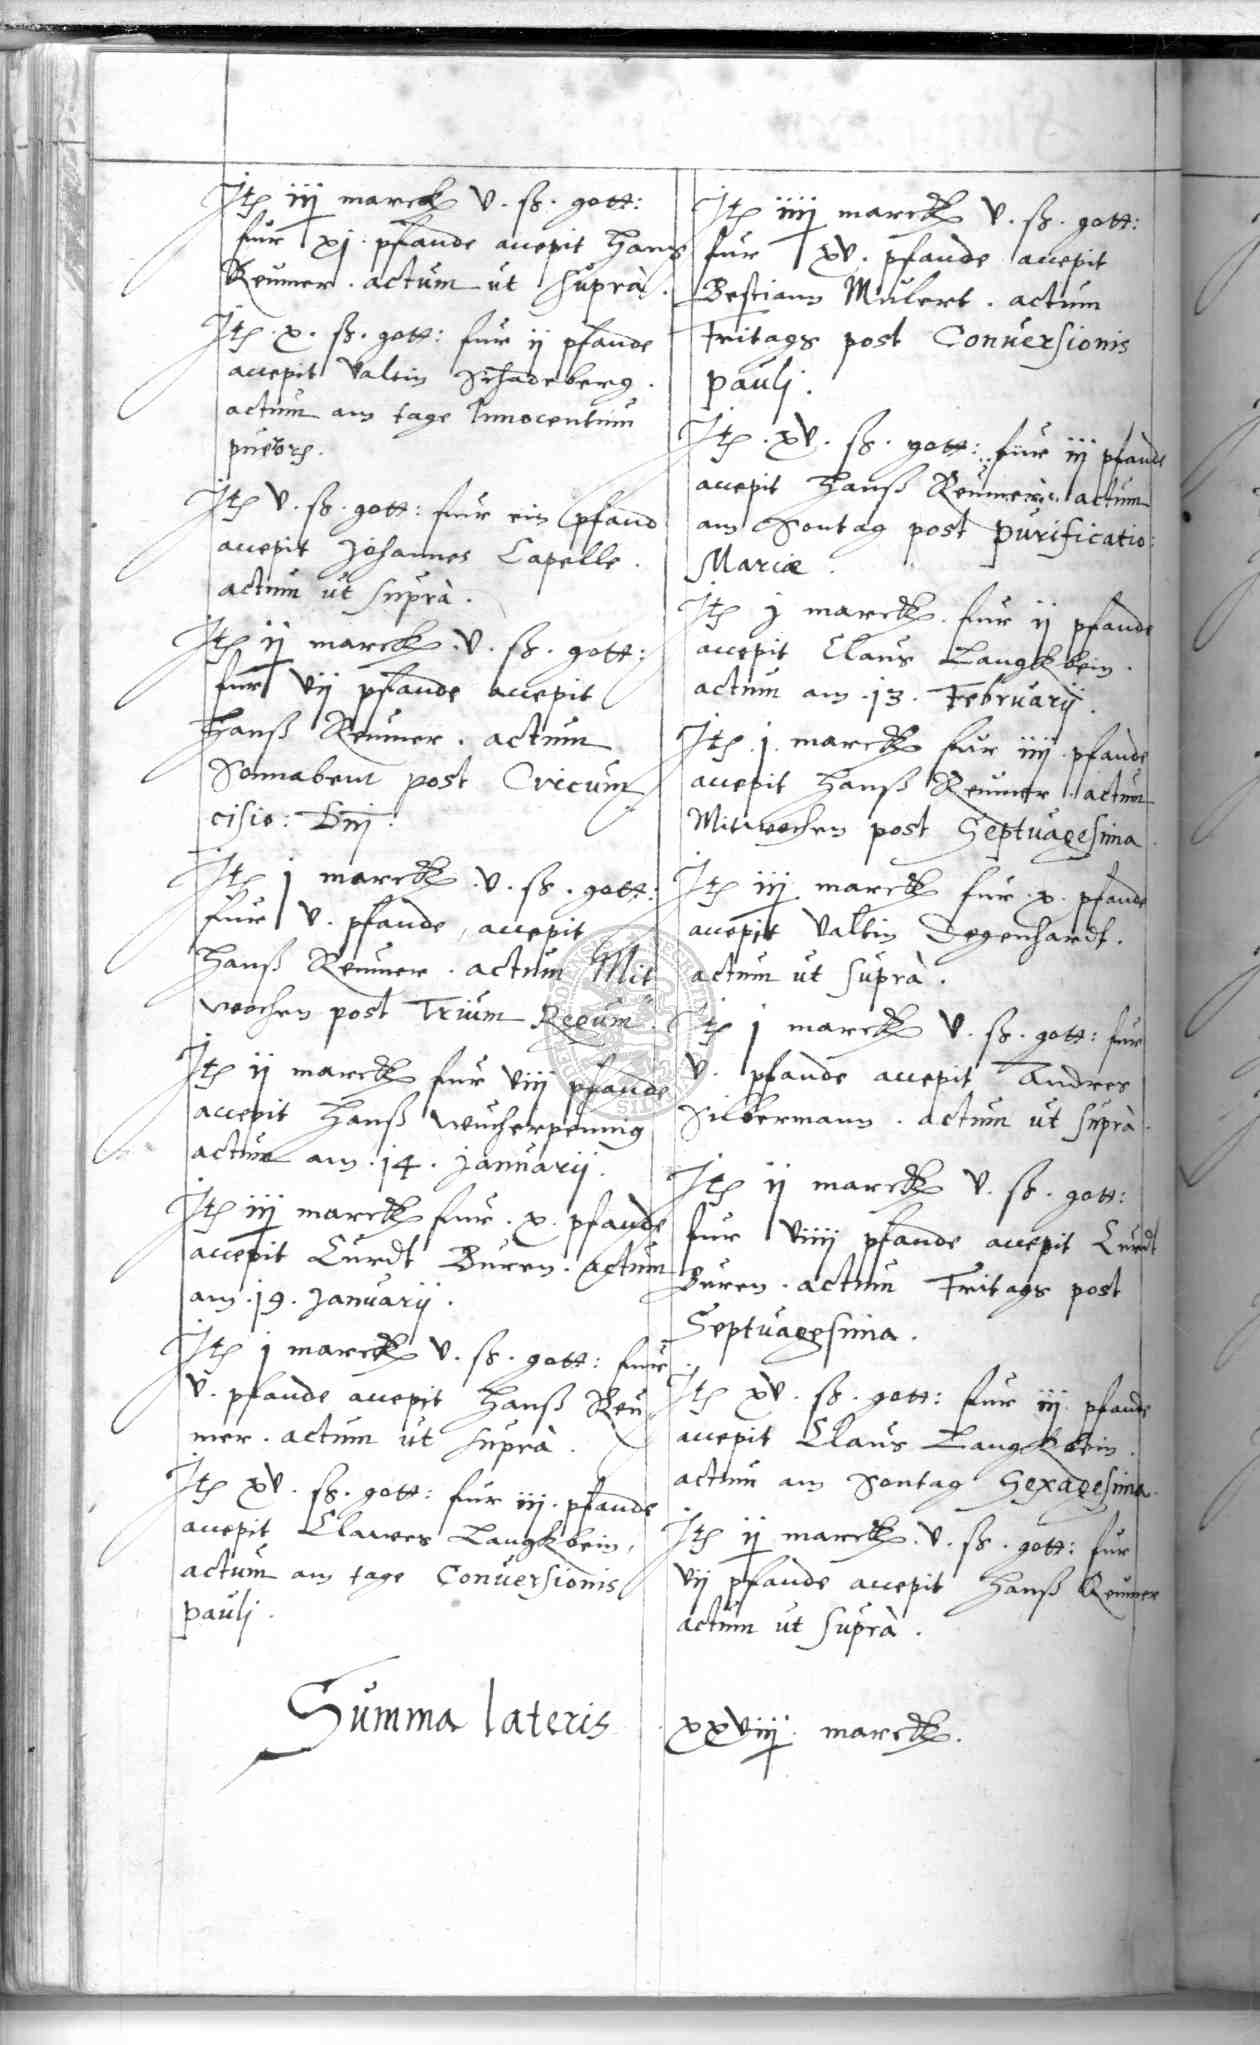 Jtem iij marck v. ß. gott:
fur xj pfande accepit Hans
Reumer. actum ut suprà.
Jtem. x. ß. gott: fur ij pfande
accepit Valtin Schadeberg.
actum am tage Innocentum
puerorum.
Jtem v. ß. gott: fur ein pfand
accepit Johannes Capelle.
actum ut suprà.
Jtem ij marck. v. ß. gott:
fur vij pfande accepit
Hanß Reumer. actum
Sonnabent post Circum
cisio: Dnj:
Jtem j marck. v. ß. gott:
fur v. pfande, accepit
Hanß Reumer. actum Mit
wochen post Trium Regum.
Jtem ij marck fur viij pfande
accepit Hanß wucherpennig
actum am. 14. Januarij.
Jtem iij marck fur. x. pfande
accepit Curdt Buren. actum
am. 19. Januarij.
Jtem j marck v. ß. gott: fur
v. pfande accepit Hanß Reu
mer. actum ut suprà.
Jtem xv. ß. gott: fur iij. pfande
accepit Clawes Langkbein,
actum am tage Conuersionis
paulj.
Jtem iiij marck v. ß. gott:
fur xv. pfande accepit
Bestiann Mulert. actum
Fritags post Conuersionis
paulj.
Jtem. xv. ß. gott: fur iij pfande
accepit Hanß Reumer. actum
am Sontag post purificatio:
Mariæ.
Jtem j marck. fur ij pfande
accepit Claus Langkbein.
actum am. 13. Februarij.
Jtem. j. marck fur iiij pfande
accepit Hanß Reumer actum
Mitwochen post Septuagesima.
Jtem iij marck fur. x. pfande
accepit Valtin Degenhardt.
actum ut suprà.
Jtem j marck v. ß. gott: fur
v. pfande accepit Andres
Silbermann. actum ut suprà.
Jtem ij marck v. ß. gott:
fur viiij pfande accepit Curdt
Buren. actum Fritags post
Septuagesima.
Jtem xv. ß. gott: fur iij. pfande
accepit Claus Langkbein.
actum am Sontag Sexagesima.
Jtem ij marck. v. ß. gott: fur
vij pfande accepit Hanß Reumer
actum ut suprà.
Summa lateris xxviij. marck.